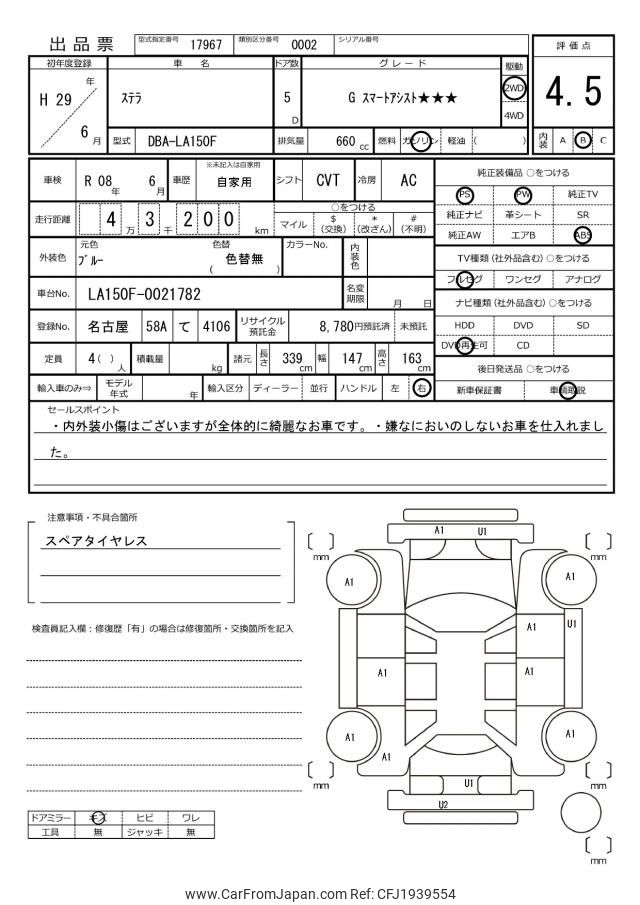 出品票 型式指定番号 17967 類別区分番号 0002 シリアル番号
評価点
4.5
内装 A B C
初年度登録 車名 ドア数 グレード 駆動
H 29 年 6 月 ステラ 5 D G スマートアシスト★★★ 2WD 4WD
型式 DBA-LA150F 排気量 660 cc 燃料 ガソリン 軽油 ( )
車検 R 08 年 6 月 車歴 ※未記入は自家用 自家用 シフト CVT 冷房 AC
走行距離 4 万 3 千 2 0 0 km ○をつける
マイル $ (交換) * (改ざん) # (不明)
外装色 元色 ブルー 色替 ( 色替無 ) カラーNo. 内装色
車台No. LA150F-0021782 名変期限 月 日
登録No. 名古屋 58A て 4106 リサイクル預託金 8,780円預託済 未預託
定員 4( ) 人 積載量 kg 諸元 長さ 339 cm 幅 147 cm 高さ 163 cm
輸入車のみ⇒ モデル年式 年 輸入区分 ディーラー 並行 ハンドル 左 右
純正装備品 ○をつける
PS PW 純正TV
純正ナビ 革シート SR
純正AW エアB ABS
TV種類(社外品含む) ○をつける
フルセグ ワンセグ アナログ
ナビ種類(社外品含む) ○をつける
HDD DVD SD
DVD再生可 CD
後日発送品 ○をつける
新車保証書 車輌取説
セールスポイント
・内外装小傷はございますが全体的に綺麗なお車です。・嫌なにおいのしないお車を仕入れまし
た。
注意事項・不具合箇所
スペアタイヤレス
検査員記入欄：修復歴「有」の場合は修復箇所・交換箇所を記入
ドアミラー キズ ヒビ ワレ
工具 無 ジャッキ 無
A1 U1
〔 〕 mm 〔 〕 mm
A1 A1
A1 U1
A1 A1
A1 A1
A1
〔 〕 mm 〔 〕 mm
U1
U2
〔 〕 mm
www.CarFromJapan.com Ref: CFJ1939554